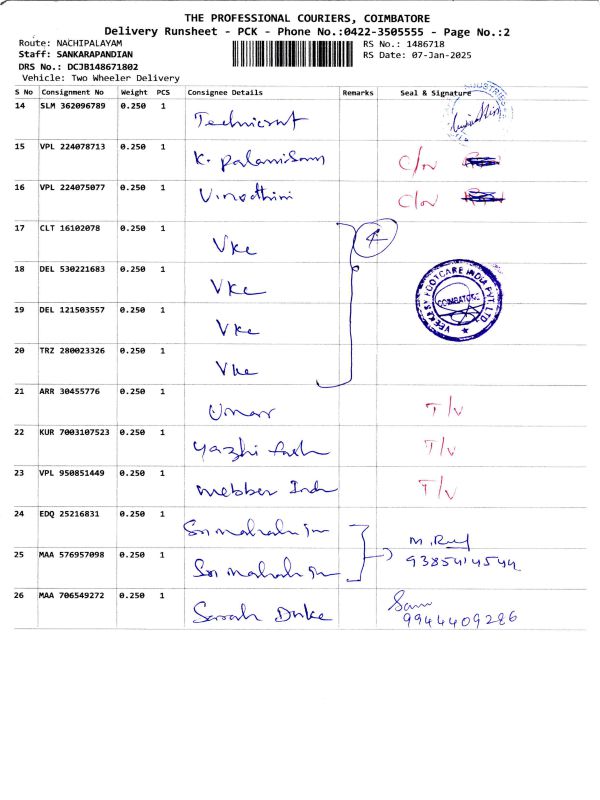 THE PROFESSIONAL COURIERS, COIMBATORE
Delivery Runsheet - PCK - Phone No.:0422-3505555 - Page No.:2
Route: NACHIPALAYAM
RS No.: 1486718
Staff: SANKARAPANDIAN
RS Date: 07-Jan-2025
DRS No.: DCJB148671802
Vehicle: Two Wheeler Delivery
S No Consignment No Weight PCS Consignee Details Remarks Seal & Signature
14 SLM 362096789 0.250 1
15 VPL 224078713 0.250 1 K. Palanisamy C/N
16 VPL 224075077 0.250 1 Vinothini C/N
17 CLT 16102078 0.250 1 Vkc 4
18 DEL 530221683 0.250 1 Vkc
VEEKESY FOOTCARE INDIA PVT LTD
COIMBATORE
19 DEL 121503557 0.250 1 Vkc
20 TRZ 280023326 0.250 1 Vkc
21 ARR 30455776 0.250 1 Umar T/V
22 KUR 7003107523 0.250 1 Yazhi T/V
23 VPL 950851449 0.250 1 T/V
24 EDQ 25216831 0.250 1 Sri
25 MAA 576957098 0.250 1 Sri
26 MAA 706549272 0.250 1 Sarah Sam
9944409286